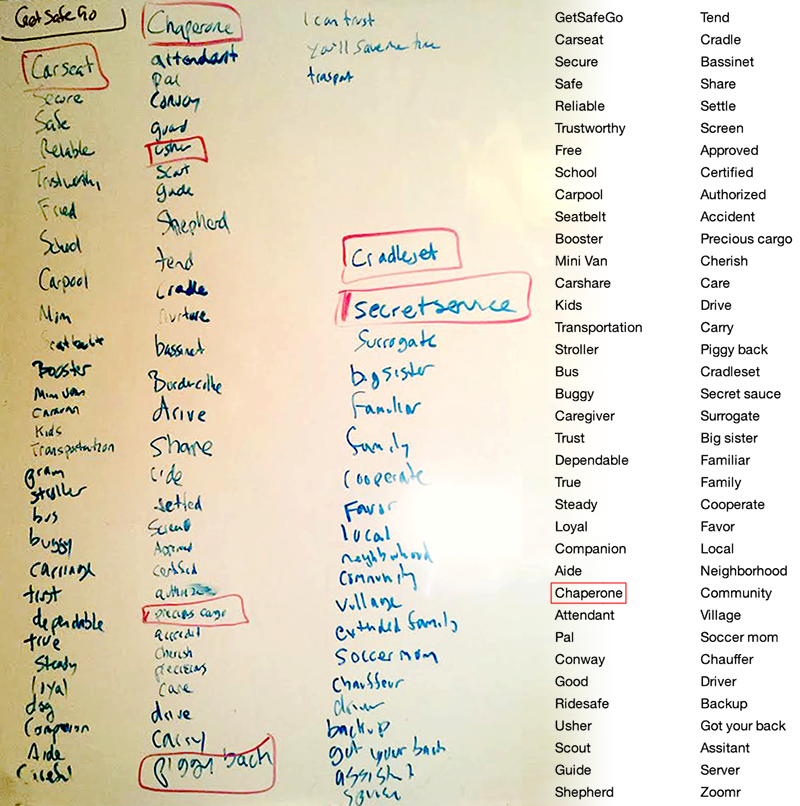 GetSafeGo
Carseat
Secure
Safe
Reliable
Trustworthy
Fried
School
Carpool
Mini
Seatbelt
Booster
Mini van
Caravan
Kids
Transportation
gram
stroller
bus
buggy
carriage
trust
dependable
true
Steady
loyal
dog
Companion
Aide
Careful
Chaperone
attendant
Pal
Convoy
guard
usher
Scout
guide
Shepherd
tend
cradle
nurture
bassinet
drive
share
ride
settled
Screen
Approved
certified
authorize
precious cargo
accredit
cherish
precious
Care
drive
Carry
piggy back
I can trust
You'll save me time
trasport
Cradleset
secret service
Surrogate
big sister
Familiar
family
cooperate
Favor
local
neighborhood
Community
Village
extended family
Soccer mom
Chauffeur
driver
backup
got your back
assist
GetSafeGo
Carseat
Secure
Safe
Reliable
Trustworthy
Free
School
Carpool
Seatbelt
Booster
Mini Van
Carshare
Kids
Transportation
Stroller
Bus
Buggy
Caregiver
Trust
Dependable
True
Steady
Loyal
Companion
Aide
Chaperone
Attendant
Pal
Conway
Good
Ridesafe
Usher
Scout
Guide
Shepherd
Tend
Cradle
Bassinet
Share
Settle
Screen
Approved
Certified
Authorized
Accident
Precious cargo
Cherish
Care
Drive
Carry
Piggy back
Cradleset
Secret sauce
Surrogate
Big sister
Familiar
Family
Cooperate
Favor
Local
Neighborhood
Community
Village
Soccer mom
Chauffer
Driver
Backup
Got your back
Assitant
Server
Zoomr